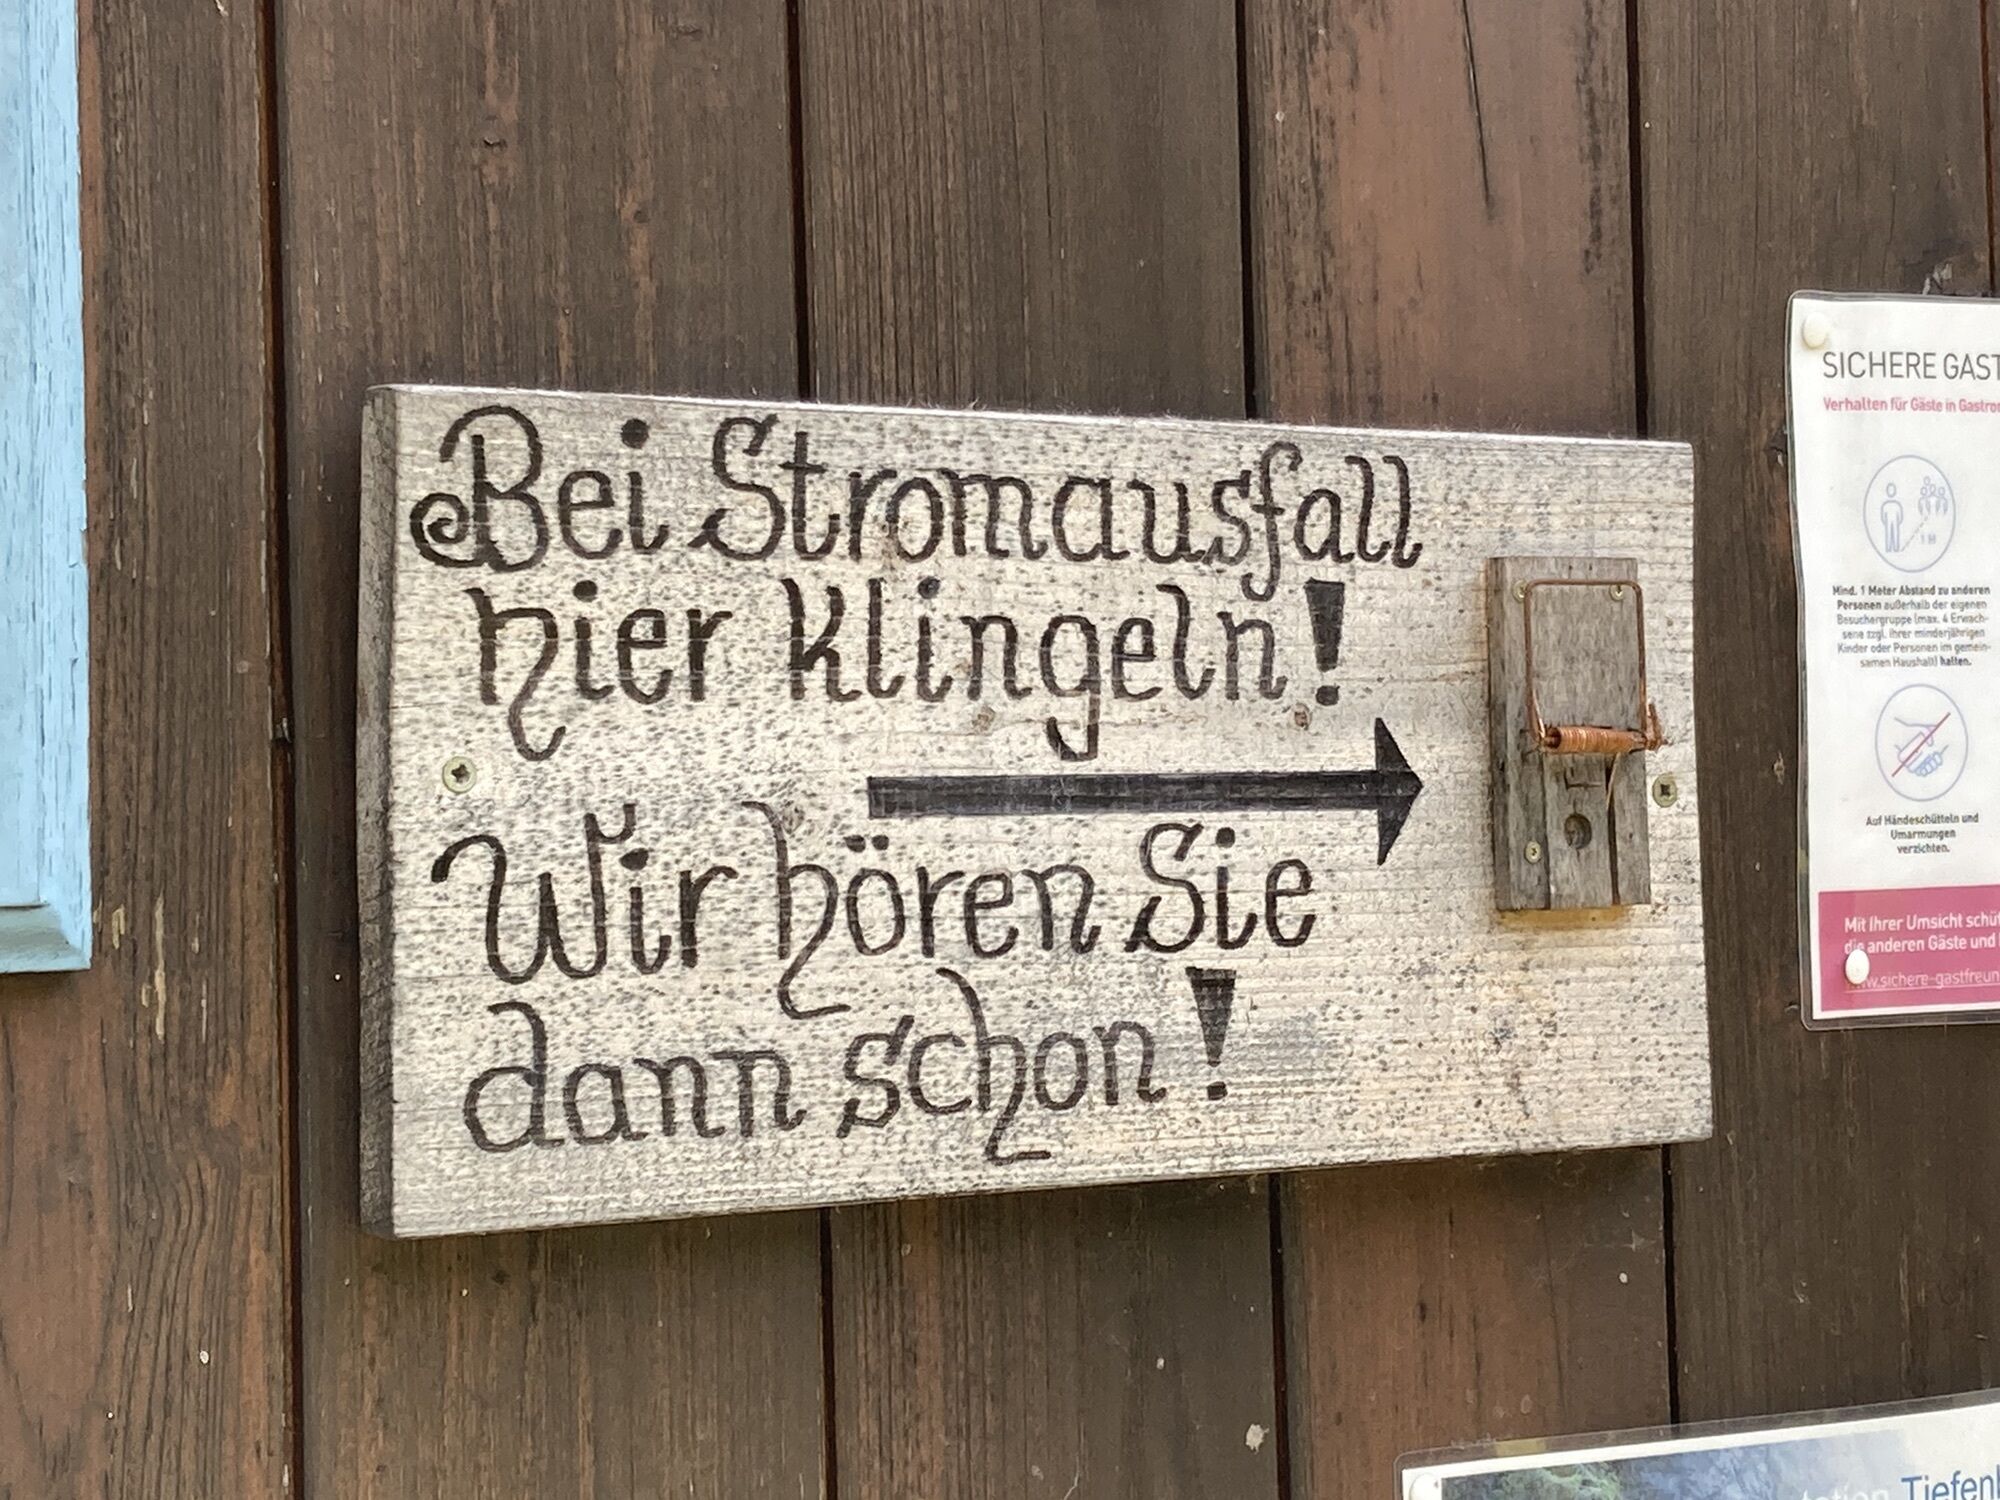 Bei Stromausfall
hier klingeln!
Wir hören Sie
dann schon!
SICHERE
Verhalten für Gäste in
1 M
Mind. 1 Meter Abstand zu anderen
Personen außerhalb der eigenen
Besuchergruppe (max. 4 Erwach-
sene zzgl. ihrer minderjährigen
Kinder oder Personen im gemein-
samen Haushalt) halten.
Auf Händeschütteln und
Umarmungen
verzichten.
Mit Ihrer Umsicht
die anderen Gäste und